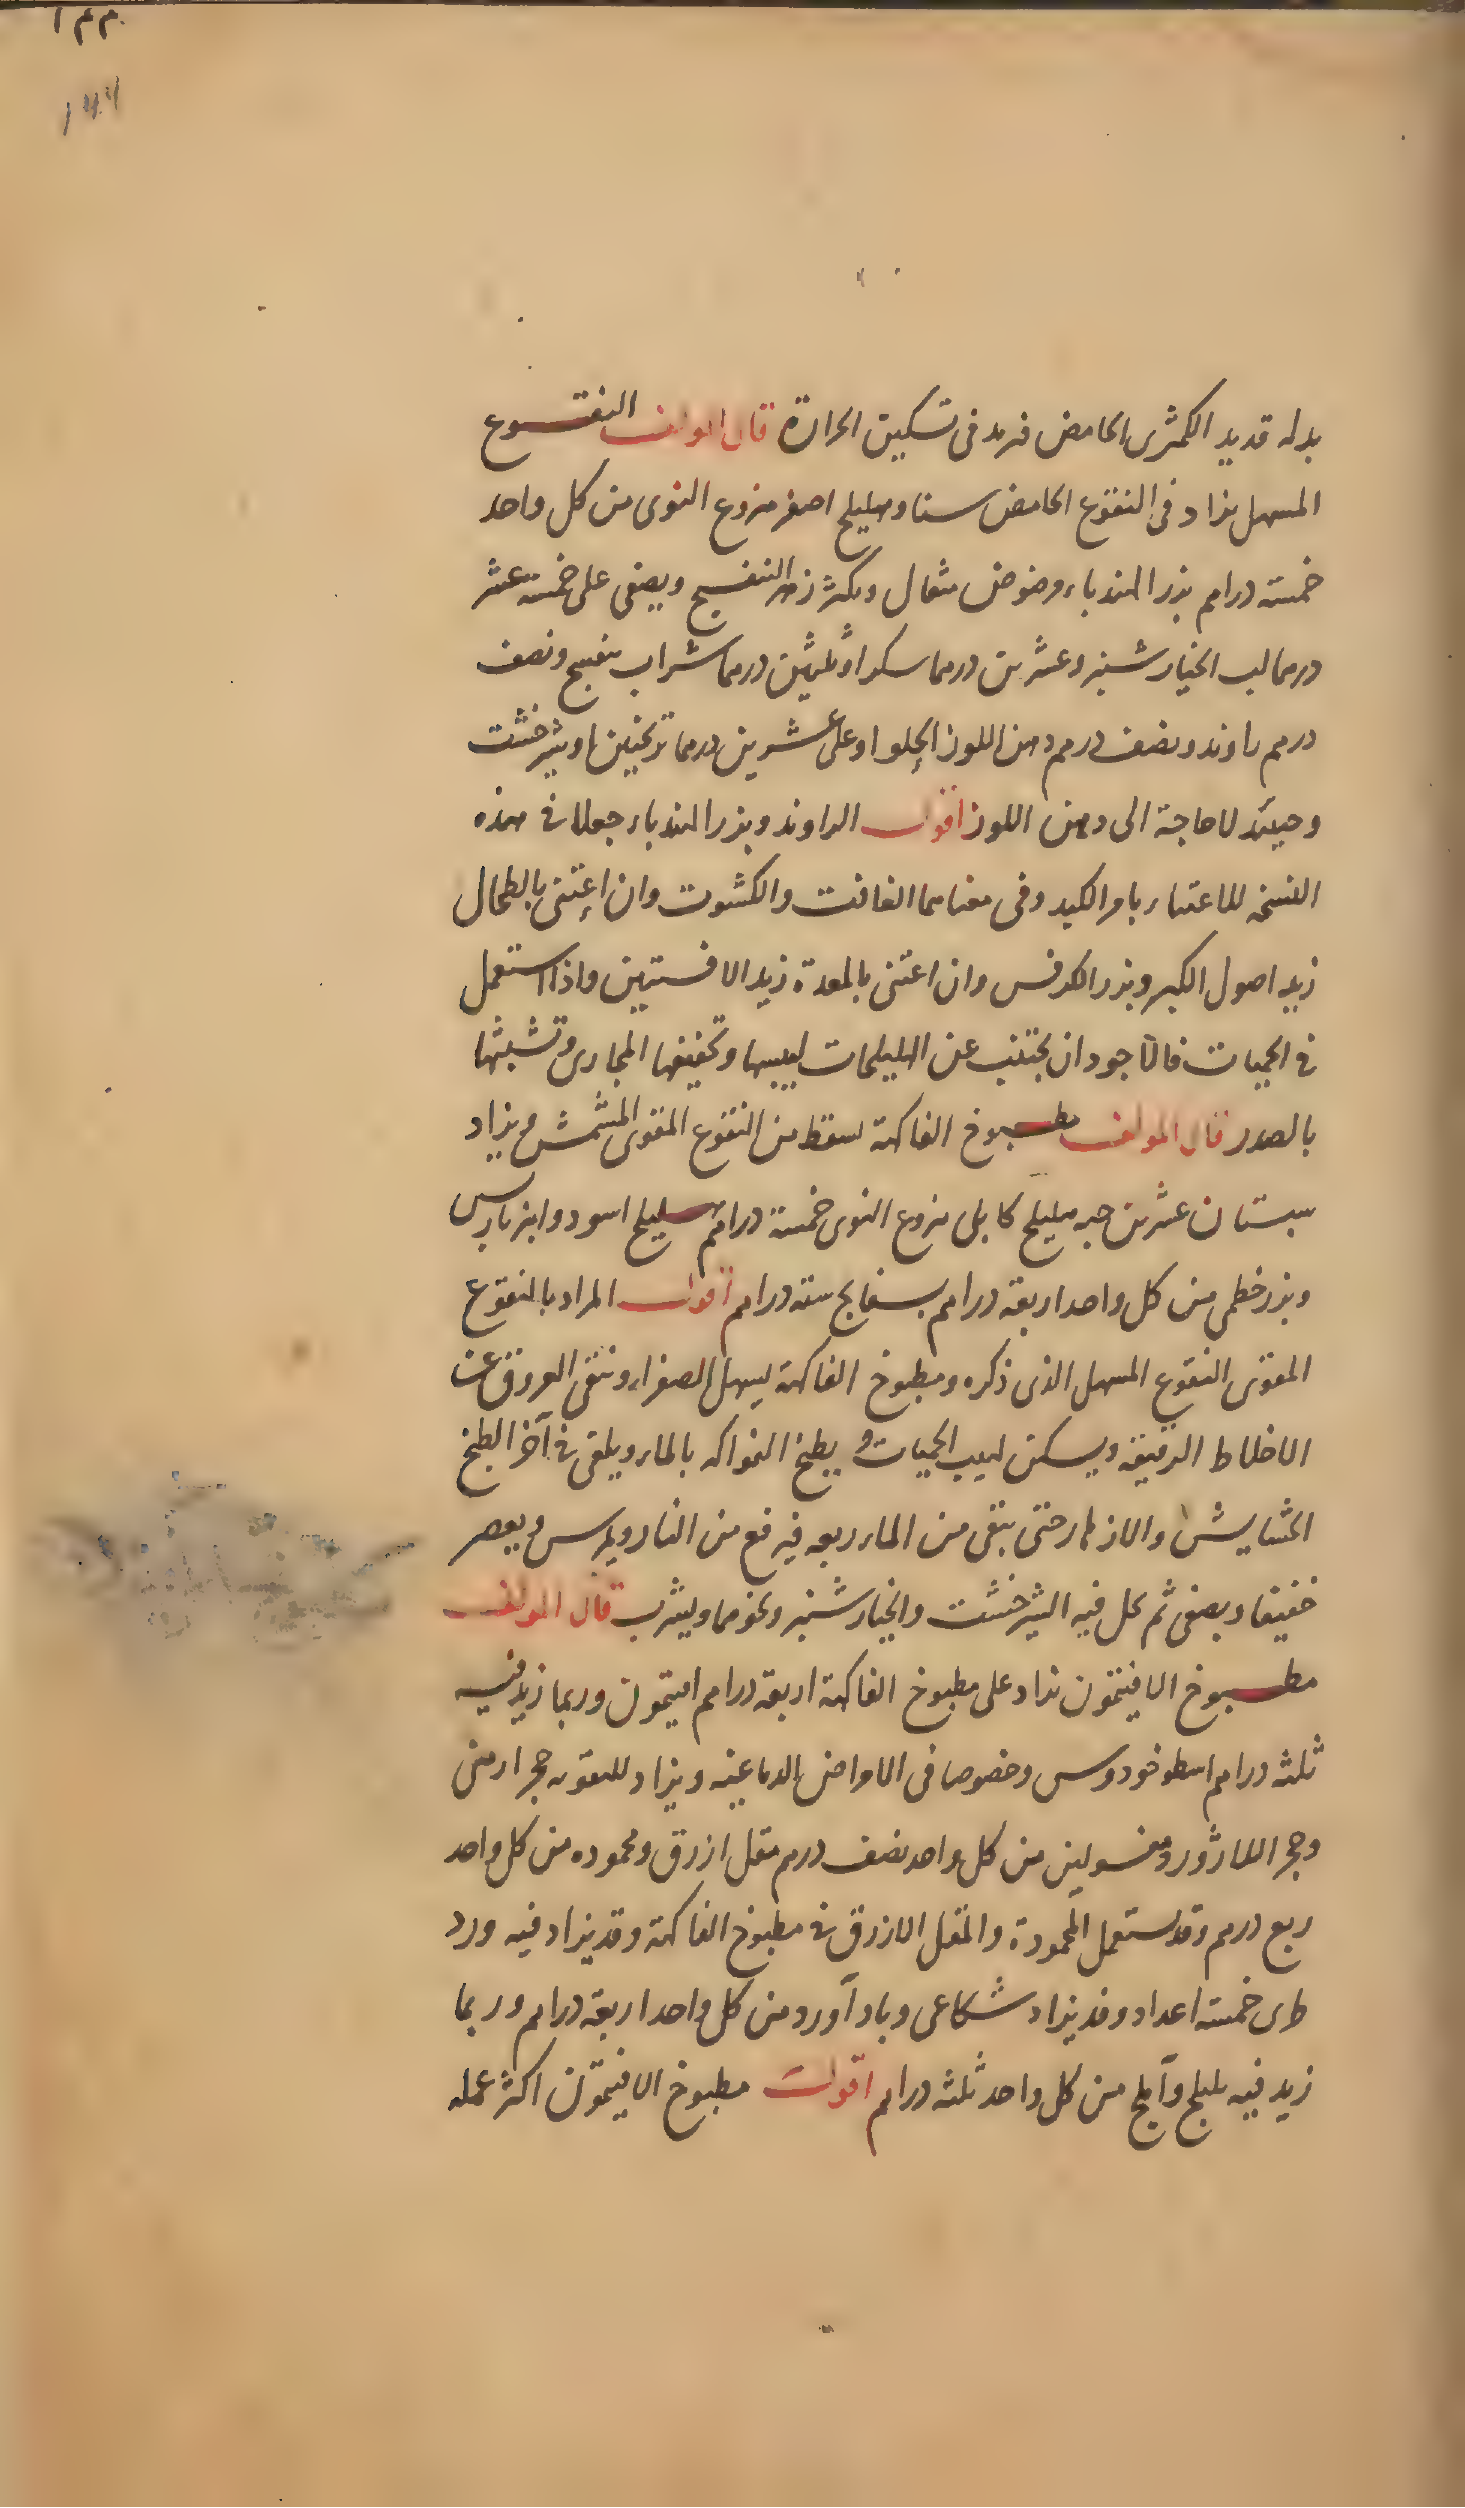 ١٤٤
١٤٤
بدله قديد الكمثرى الحامض فزيد فى تسكين الحرارة قال المولف النقوع
المسهل يزاد فى النقوع الحامض سنا وهليلج اصفر منزوع النوى من كل واحد
خمسة دراهم بزر الهندباء مرضوض مثقال ويكثر زهر البنفسج ويصفى على خمسة عشر
درهما لب الخيار شنبر وعشرين درهما سكرا وثلثين درهما شراب بنفسج ونصف
درهم راوند ونصف درهم دهن اللوز الحلو او على عشرين درهما ترنجبين او شيرخشت
وحينئذ لا حاجة الى دهن اللوز اقول الراوند وبزر الهندباء جعلا فى هذه
النسخة للاعتناء بامر الكبد وفى معناهما الغافت والكشوت وان اعتنى بالطحال
زيد اصول الكبر وبزر الكرفس وان اعتنى بالمعدة زيد الافسنتين واذا استعمل
فى الحميات فالاجود ان يجتنب عن الهليلجات ليبسها وتجفيفها المجارى وتشبثها
بالصدر قال المولف مطبوخ الفاكهة يسقط من النقوع المقوى المشمش ويزاد
سبستان عشرين حبه هليلج كابلى منزوع النوى خمسة دراهم هليلج اسود وانبرباريس
وبزر خطمى من كل واحد اربعة دراهم بسفايج ستة دراهم اقول المراد بالنقوع
المقوى النقوع المسهل الذى ذكره ومطبوخ الفاكهة يسهل الصفراء وينقى العروق عن
الاخلاط الرقيقة ويسكن لهيب الحميات و يطبخ الفواكه بالماء ويلقى فى آخر الطبخ
الحشايش والازهار حتى يبقى من الماء ربعه فيرفع من النار ويمرس ويعصر
خفيفا ويصفى ثم يحل فيه الشيرخشت والخيار شنبر ونحوهما ويشرب قال المولف
مطبوخ الافيتمون يزاد على مطبوخ الفاكهة اربعة دراهم افيتمون وربما زيد فيه
ثلثه دراهم اسطوخودوس وخصوصا فى الامراض الدماغيه ويزاد للتقويه حجر ارمنى
وحجر اللازورد مغسولين من كل واحد نصف درهم مقل ازرق ومحموده من كل واحد
ربع درهم وقد يستعمل المحمودة والمقل الازرق فى مطبوخ الفاكهة وقد يزاد فيه ورد
طرى خمسة اعداد وقد يزاد شكاعى وباد آورد من كل واحد اربعة دراهم وربما
زيد فيه بليلج وآملج من كل واحد ثلثه دراهم اقول مطبوخ الافيتمون اكثر عمله